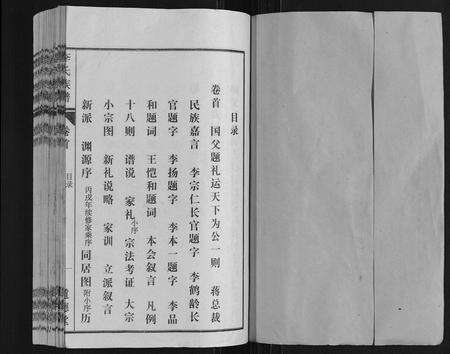 目录
卷首　国父题礼运天下为公一则　蒋总裁
民族嘉言　李宗仁长官题字　李鹤龄长
官题字　李扬题字　李本一题字　李品
和题词　王恺和题词　本会叙言　凡例
十八则　谱说　家礼小序　宗法考证　大宗
小宗图　新礼说略　家训　立派叙言
新派　渊源序丙戌年续修家乘序　同居图附小序　历
李氏族谱
卷首
目录
一